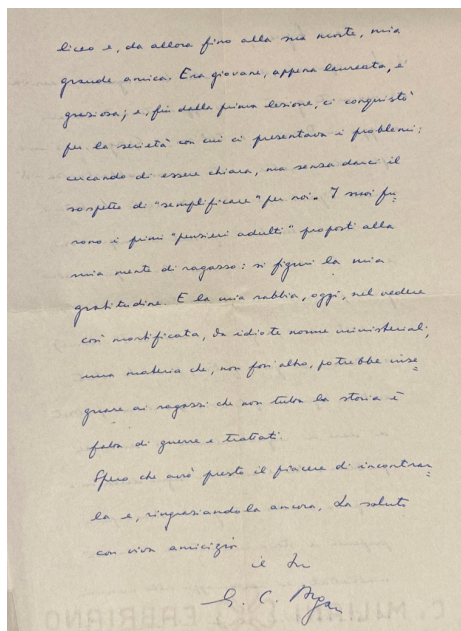 liceo e, da allora fino alla sua morte, mia
grande amica. Era giovane, appena laureata, e
graziosa; e fin dalla prima lezione, ci conquistò
per la serietà con cui ci presentava i problemi:
cercando di essere chiara, ma senza darci il
sospetto di "semplificare" per noi. I suoi fu=
rono i primi "pensieri adulti" proposti alla
mia mente di ragazzo: si figuri la mia
gratitudine. E la mia rabbia, oggi, nel vedere
così mortificata, da idiote norme ministeriali,
una materia che, non foss'altro, potrebbe inse=
gnare ai ragazzi che non tutta la storia è
fatta di guerre e trattati.
Spero che avrò presto il piacere di incontrar=
la e, ringraziandola ancora, La saluto
con viva amicizia
il Suo
G. C. Argan
C. MILIANI FABRIANO